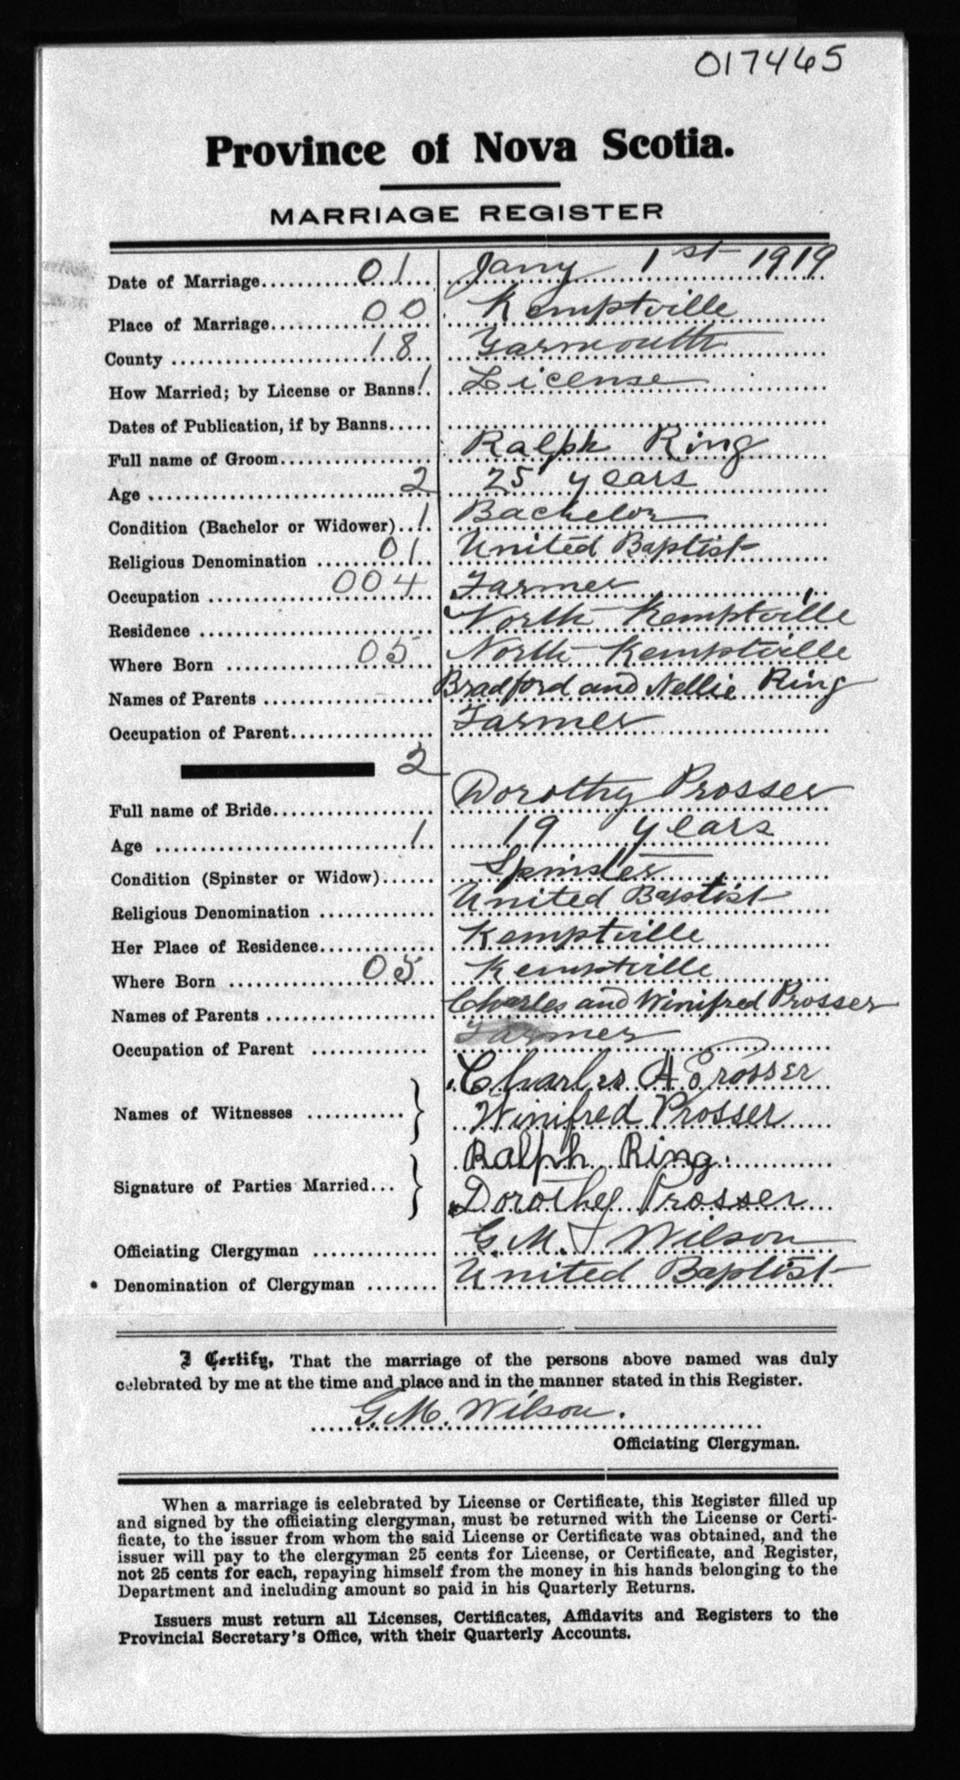 017465
Province of Nova Scotia.
MARRIAGE REGISTER
Date of Marriage........... 01 Jany 1st 1919
Place of Marriage........... 00 Kemptville
County ........... 18 Yarmouth
How Married; by License or Banns. 1 License
Dates of Publication, if by Banns.....
Full name of Groom........... Ralph Ring
Age ........... 2 25 years
Condition (Bachelor or Widower).. 1 Bachelor
Religious Denomination ....... 01 United Baptist
Occupation ........... 004 Farmer
Residence ........... North Kemptville
Where Born ........... 05 North Kemptville
Names of Parents ........... Bradford and Nellie Ring
Occupation of Parent........... Farmer
2
Full name of Bride........... Dorothy Prosser
Age ........... 1 19 years
Condition (Spinster or Widow)...... Spinster
Religious Denomination ........... United Baptist
Her Place of Residence........... Kemptville
Where Born ........... 05 Kemptville
Names of Parents ........... Charles and Winifred Prosser
Occupation of Parent ........... Farmer
Charles A. Prosser
Names of Witnesses ...........
Winifred Prosser
Ralph Ring.
Signature of Parties Married...
Dorothy Prosser
Officiating Clergyman ........... G. M. Wilson
Denomination of Clergyman ........ United Baptist
I Certify, That the marriage of the persons above named was duly
celebrated by me at the time and place and in the manner stated in this Register.
G. M. Wilson.
Officiating Clergyman.
When a marriage is celebrated by License or Certificate, this Register filled up
and signed by the officiating clergyman, must be returned with the License or Certi-
ficate, to the issuer from whom the said License or Certificate was obtained, and the
issuer will pay to the clergyman 25 cents for License, or Certificate, and Register,
not 25 cents for each, repaying himself from the money in his hands belonging to the
Department and including amount so paid in his Quarterly Returns.
Issuers must return all Licenses, Certificates, Affidavits and Registers to the
Provincial Secretary's Office, with their Quarterly Accounts.